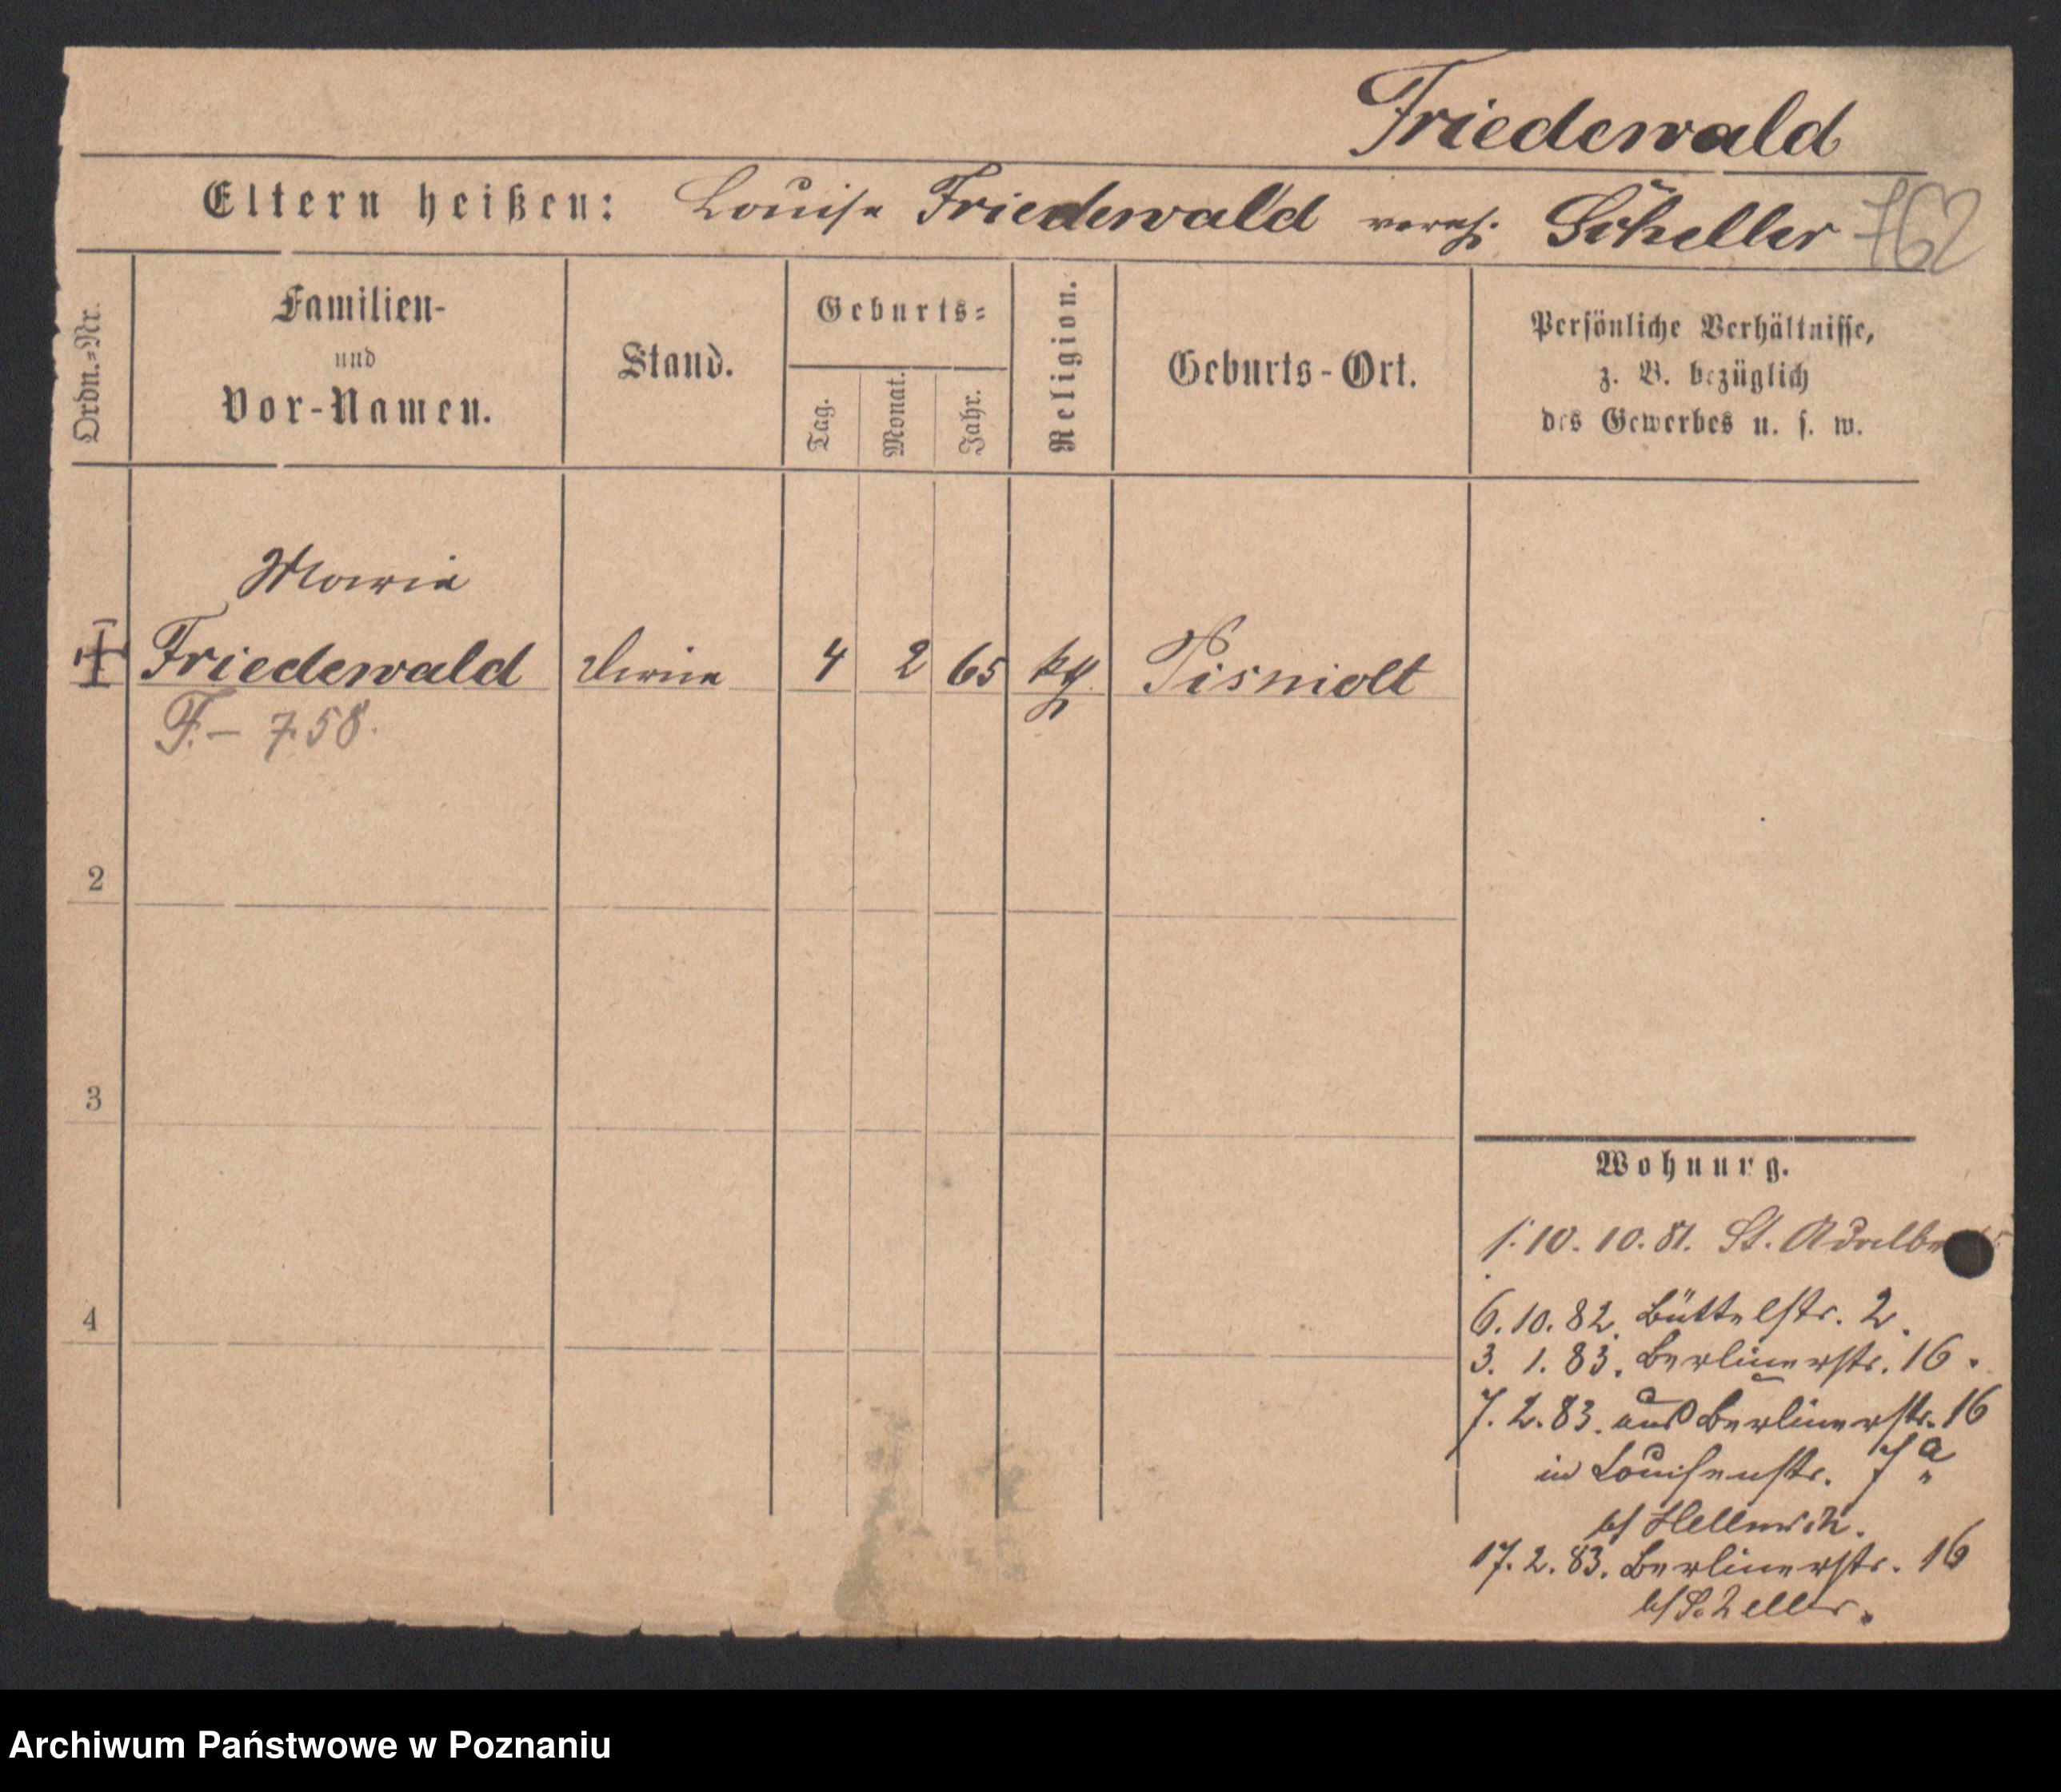 Friedewald
Eltern heißen: Louise Friedewald vereh. Scheller
762
Ordn.=Nr.
Familien-
und
Vor-Namen.
Stand.
Geburts=
Tag.
Monat.
Jahr.
Religion.
Geburts-Ort.
Persönliche Verhältnisse,
z. B. bezüglich
des Gewerbes u. s. w.
Maria
Friedewald 4 2 65
F. — 758.
2
3
4
Wohnung.
10. 10. 81. St. Adalbe
6. 10. 82. Büttelstr. 2.
3. 1. 83. Berlinerstr. 16.
7. 2. 83. aus Berlinerstr. 16
in Louisenstr. 7a
b/ Hellwich.
17. 2. 83. Berlinerstr. 16
b/ Scheller.
Archiwum Państwowe w Poznaniu